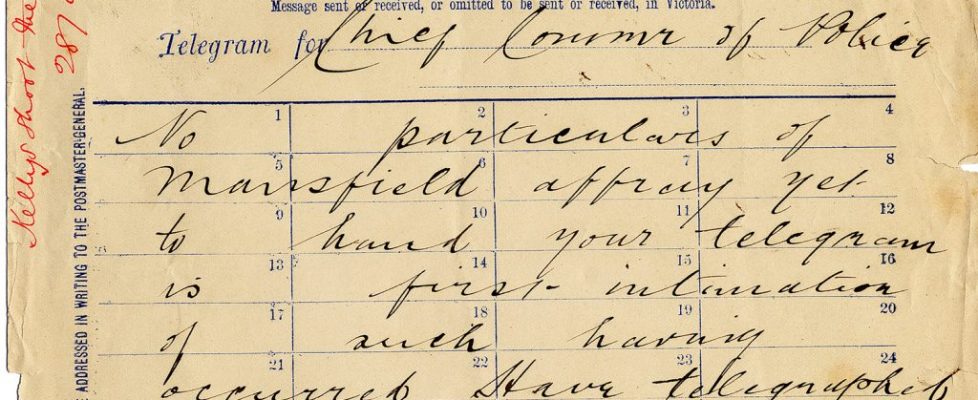 Message sent or received, or omitted to be sent or received, in Victoria.
Telegram for Chief Commr of Police
1 2 3 4
No particulars of
5 6 7 8
Mansfield affray yet
9 10 11 12
to hand your telegram
13 14 15 16
is first intimation
17 18 19 20
of such having
21 22 23 24
occurred Have telegraphed
ADDRESSED IN WRITING TO THE POSTMASTER-GENERAL.
Kellys shoot the